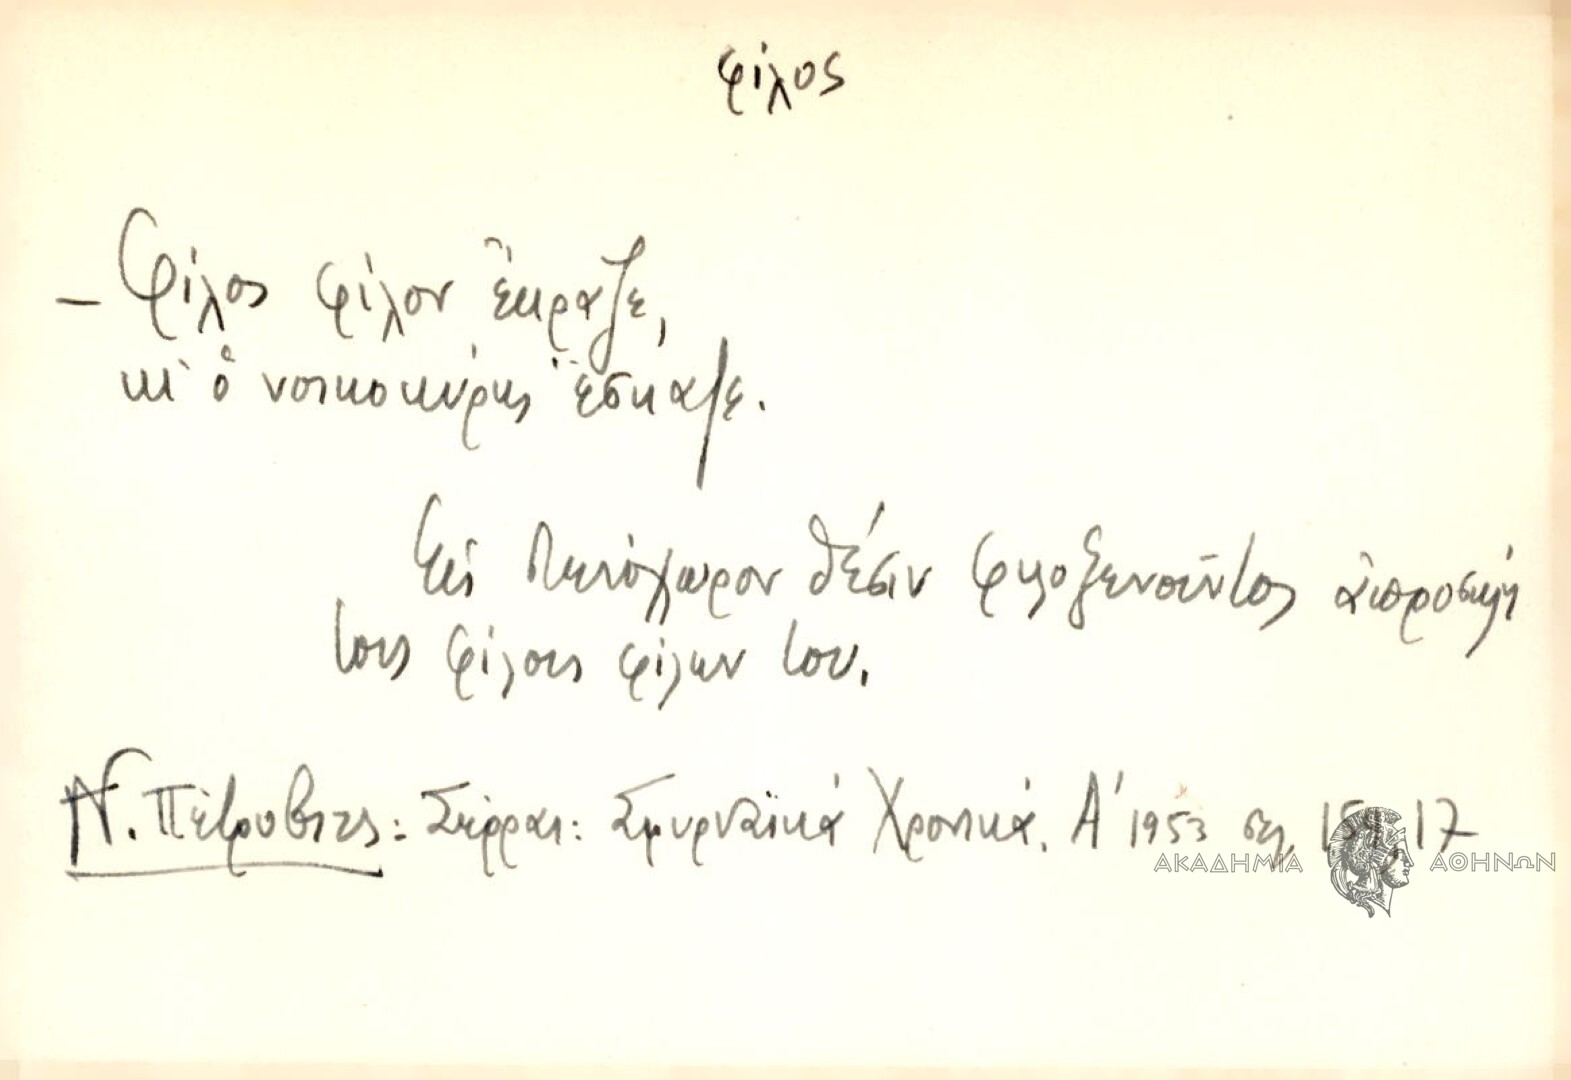 φίλος
– Φίλος φίλον ἔκραζε,
κι' ὁ νοικοκύρης ἔσκαζε.
Εἰς θέσιν φιλοξενοῦντος
τοὺς φίλους φίλων του.
Ν. Πέτροβιτς: Σέρραι: Σμυρναϊκά Χρονικά. Α' 1953 σελ. 17
ΑΚΑΔΗΜΙΑ ΑΘΗΝΩΝ